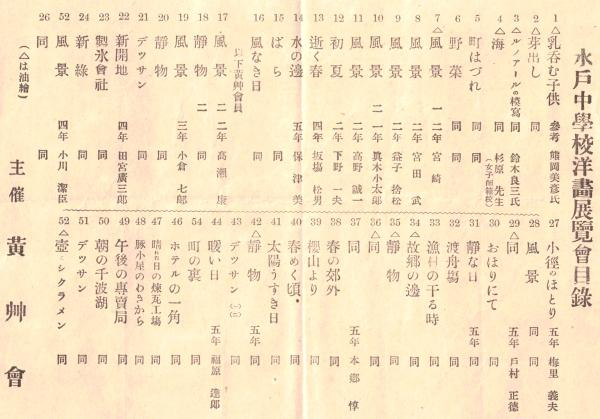 水戸中學校洋畫展覽會目錄
1 △乳呑む子供 參考 熊岡美彦氏
2 △芽出し 同
3 △ルノアールの模寫 鈴木良三氏
4 △海 杉原先生(女子師範校)
5 町はづれ 同
6 野菜 同
7 △風景 一二年 宮崎
8 風景 二年 宮田武
9 風景 二年 益子捨松
10 風景 二一年 眞木小太郎
11 風景 二年 高野誠一
12 初夏 二年 下野一夫
13 逝く春 四年 坂場松男
14 水の邊 五年 保津美
15 ばら 同
16 風なき日 同
以下黃艸會員
17 風景 二二年 高瀬康
18 靜物 二 同
19 風景 三年 小倉七郎
20 靜物 同
21 デツサン 同
22 新開地 四年 田宮廣三郎
23 製氷會社 同
24 新綠 同
25 風景 四年 小川潔臣
26 同 同
27 小徑のほとり 五年 梅里義夫
28 風景 同
29 △同 五年 戸村正德
30 おほりにて 同
31 靜な日 五年
32 渡舟場 同
33 漁村の干る時 同
34 故鄕の邊 同
35 △靜物 同
36 △同 同
37 同 五年 本鄕惇
38 春の郊外 同
39 櫻山より 同
40 春めく頃 同
41 太陽うすき日 同
42 △靜物 五年
43 デツサン(一)(二) 同
44 暖い日 五年 福原達郎
45 町の裏 同
46 ホテルの一角 同
47 晴れた日の煉瓦工場 同
48 豚小屋のわきから 同
49 午後の專賣局 同
50 朝の千波湖 同
51 デツサン 同
52 △壺とシクラメン 同
(△は油繪)
主催 黃艸會